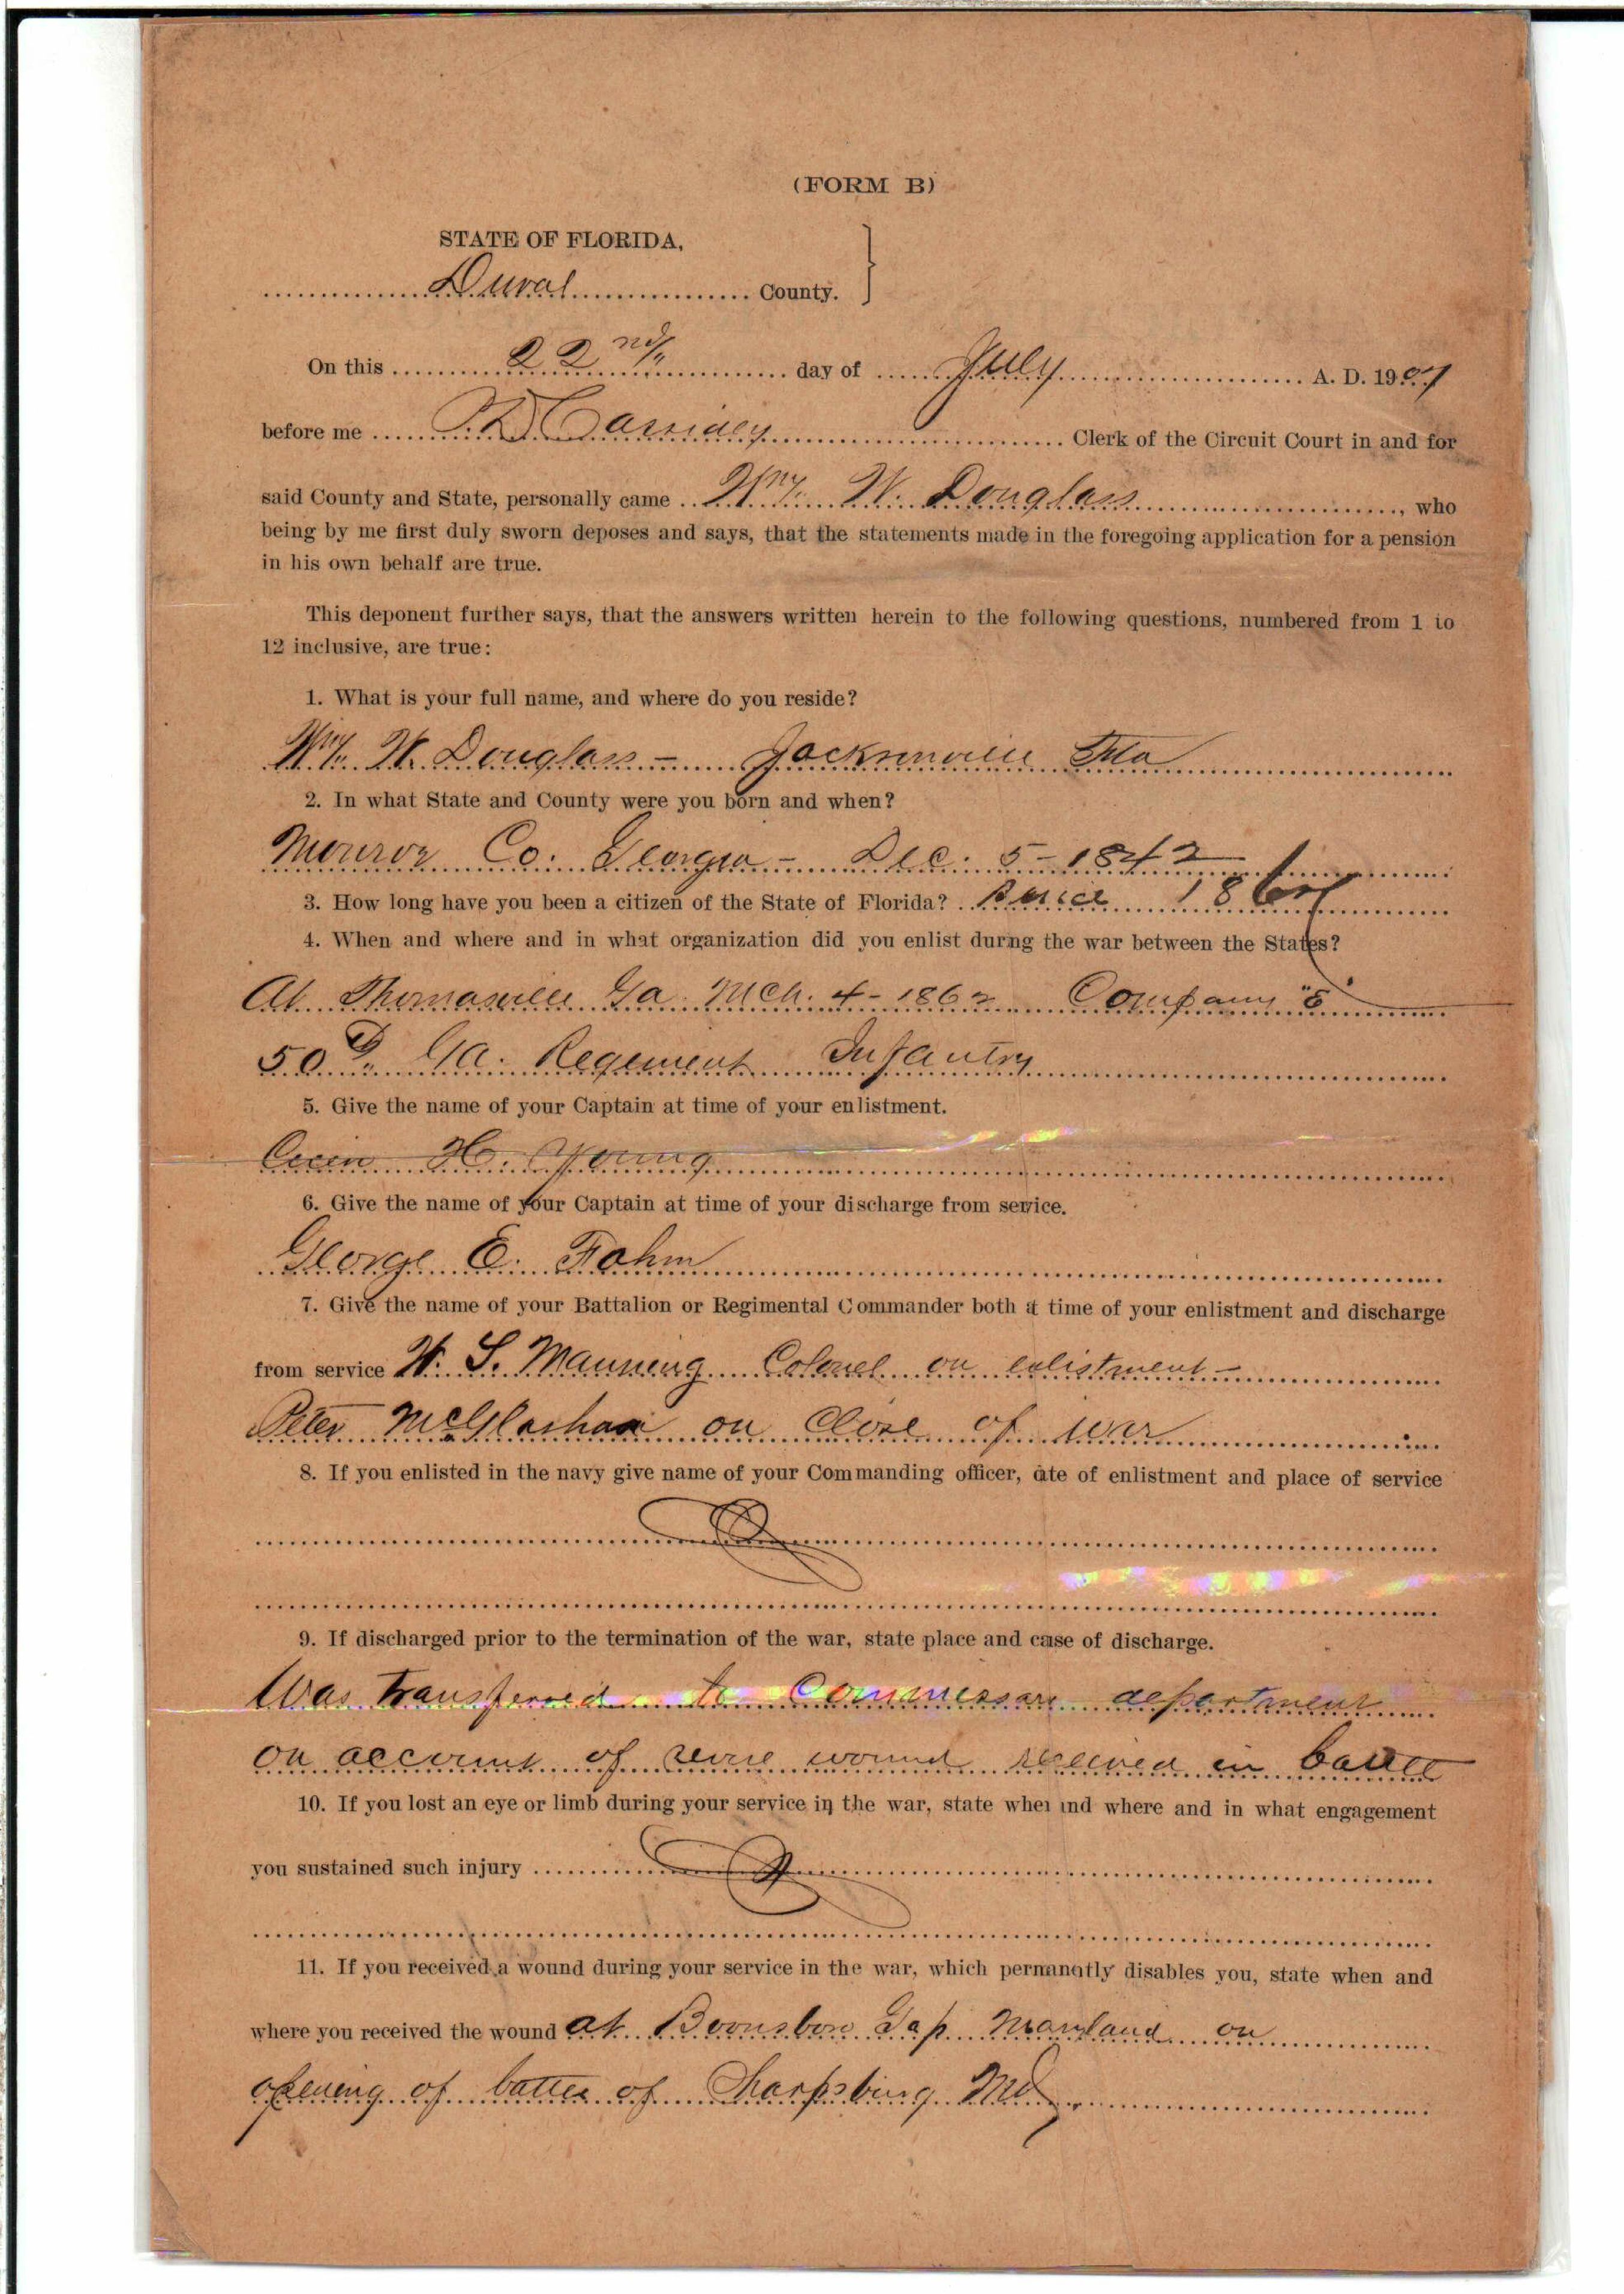 (FORM B)
STATE OF FLORIDA,
Duval County.
On this 22nd day of July A. D. 1907
before me P D Cassidey Clerk of the Circuit Court in and for
said County and State, personally came Wm. W. Douglass, who
being by me first duly sworn deposes and says, that the statements made in the foregoing application for a pension
in his own behalf are true.
This deponent further says, that the answers written herein to the following questions, numbered from 1 to
12 inclusive, are true:
1. What is your full name, and where do you reside?
Wm. W. Douglass - Jacksonville Fla
2. In what State and County were you born and when?
Monroe Co. Georgia - Dec. 5 - 1842
3. How long have you been a citizen of the State of Florida? Since
4. When and where and in what organization did you enlist during the war between the States?
At Thomasville Ga. Mch. 4 - 1862 Company "E"
50th Ga. Regement Infantry
5. Give the name of your Captain at time of your enlistment.
H. Young
6. Give the name of your Captain at time of your discharge from service.
George E. Fahm
7. Give the name of your Battalion or Regimental Commander both at time of your enlistment and discharge
from service W. S. Manning Colonel on enlistment -
Peter McGlashan on close of war
8. If you enlisted in the navy give name of your Commanding officer, date of enlistment and place of service
9. If discharged prior to the termination of the war, state place and cause of discharge.
Was transferred to Commissary department
on account of severe wound received in battle
10. If you lost an eye or limb during your service in the war, state when and where and in what engagement
you sustained such injury
11. If you received a wound during your service in the war, which permanently disables you, state when and
where you received the wound at Boonsboro Gap Maryland on
opening of battle of Sharpsburg Md